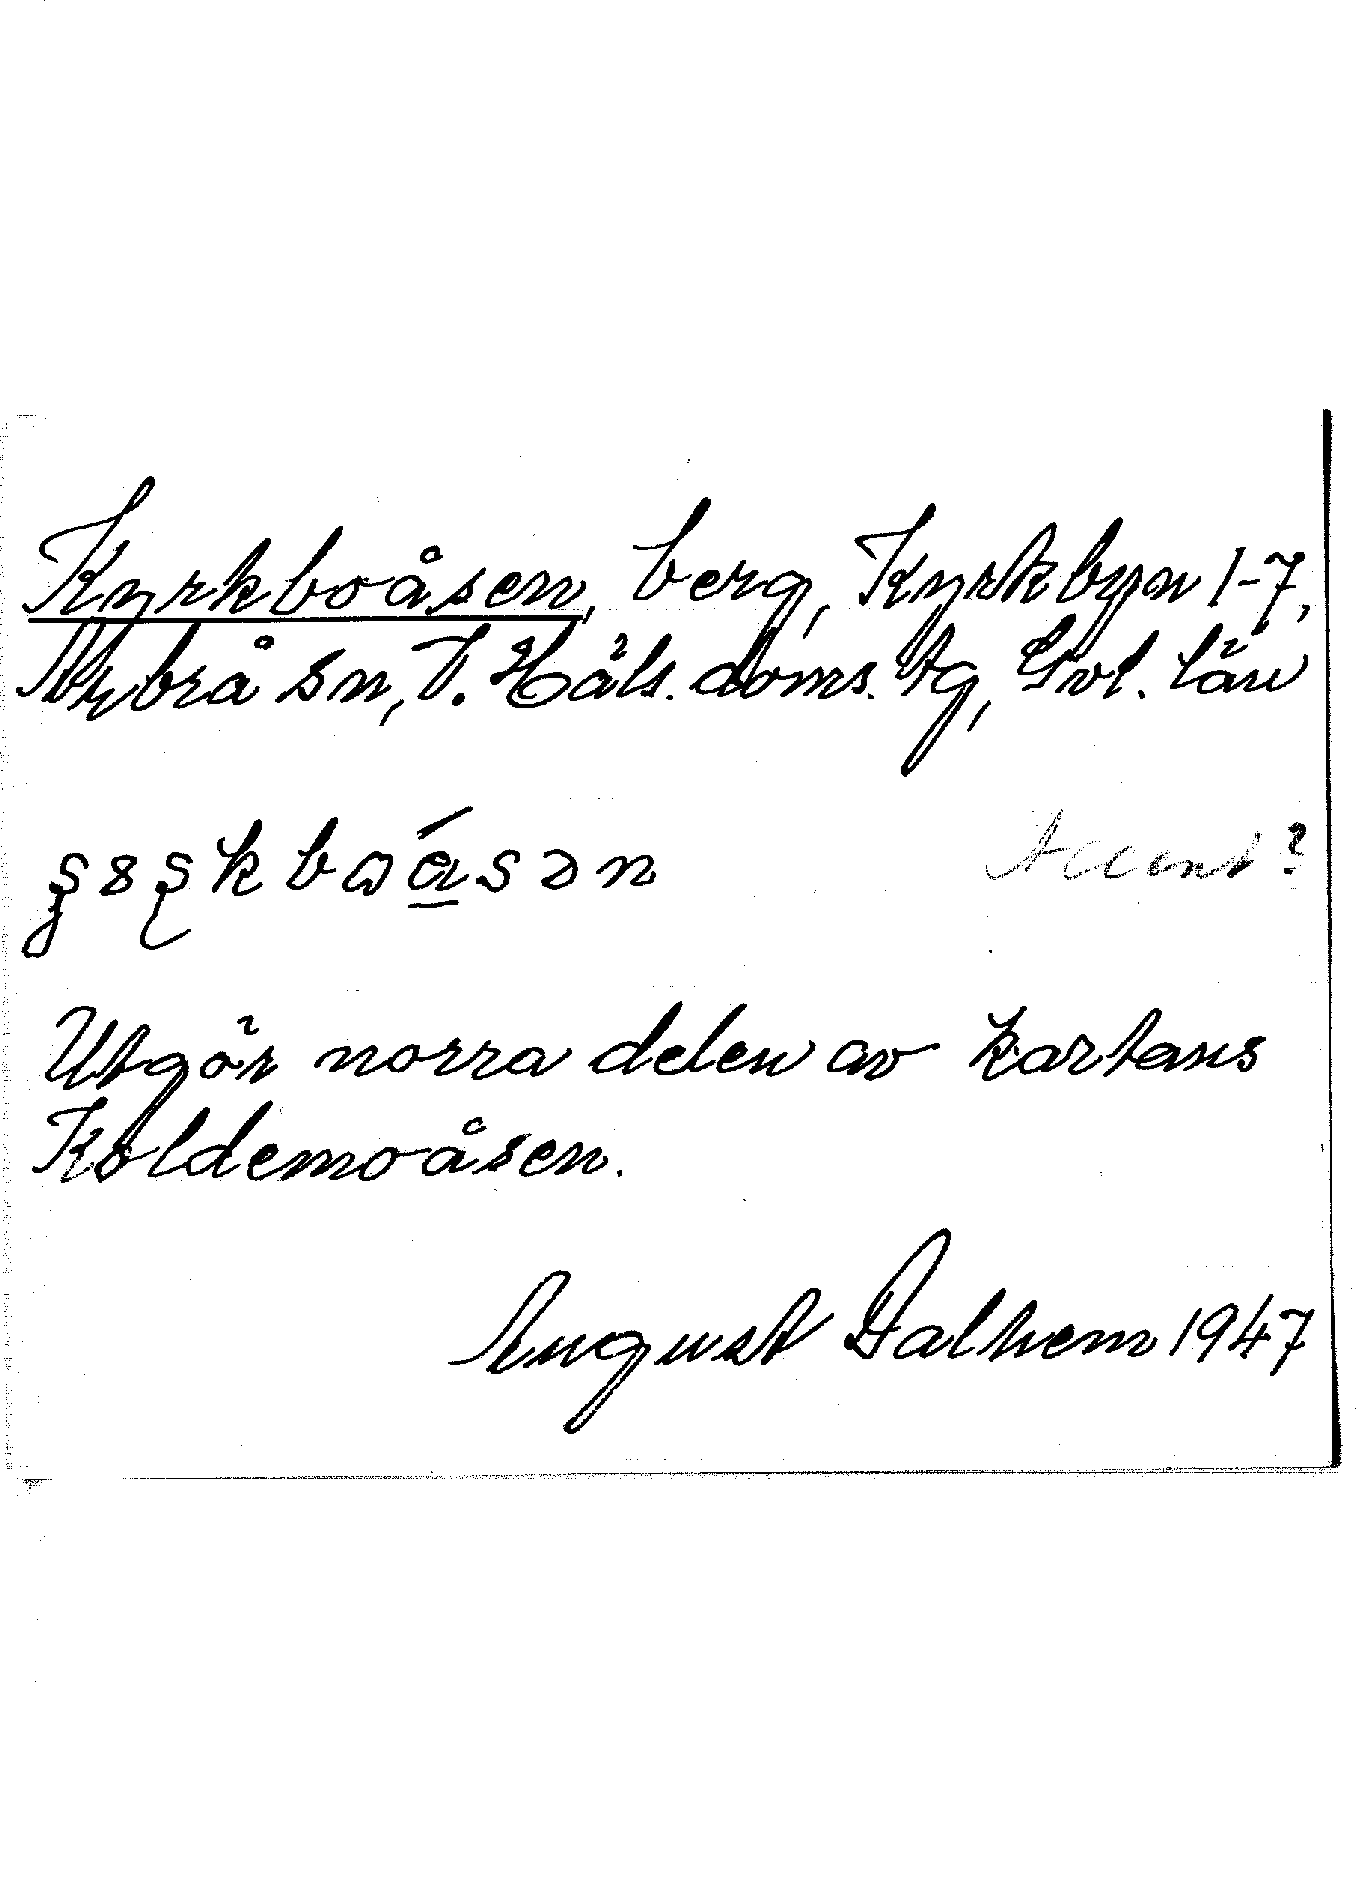 Kyrkboåsen, berg, Kyrkbyn 1-7,
Arbrå sn, V. Häls. doms. tg, Gvl. län
Accent?
Utgör norra delen av kartans
Koldemoåsen.
August Dalhem 1947